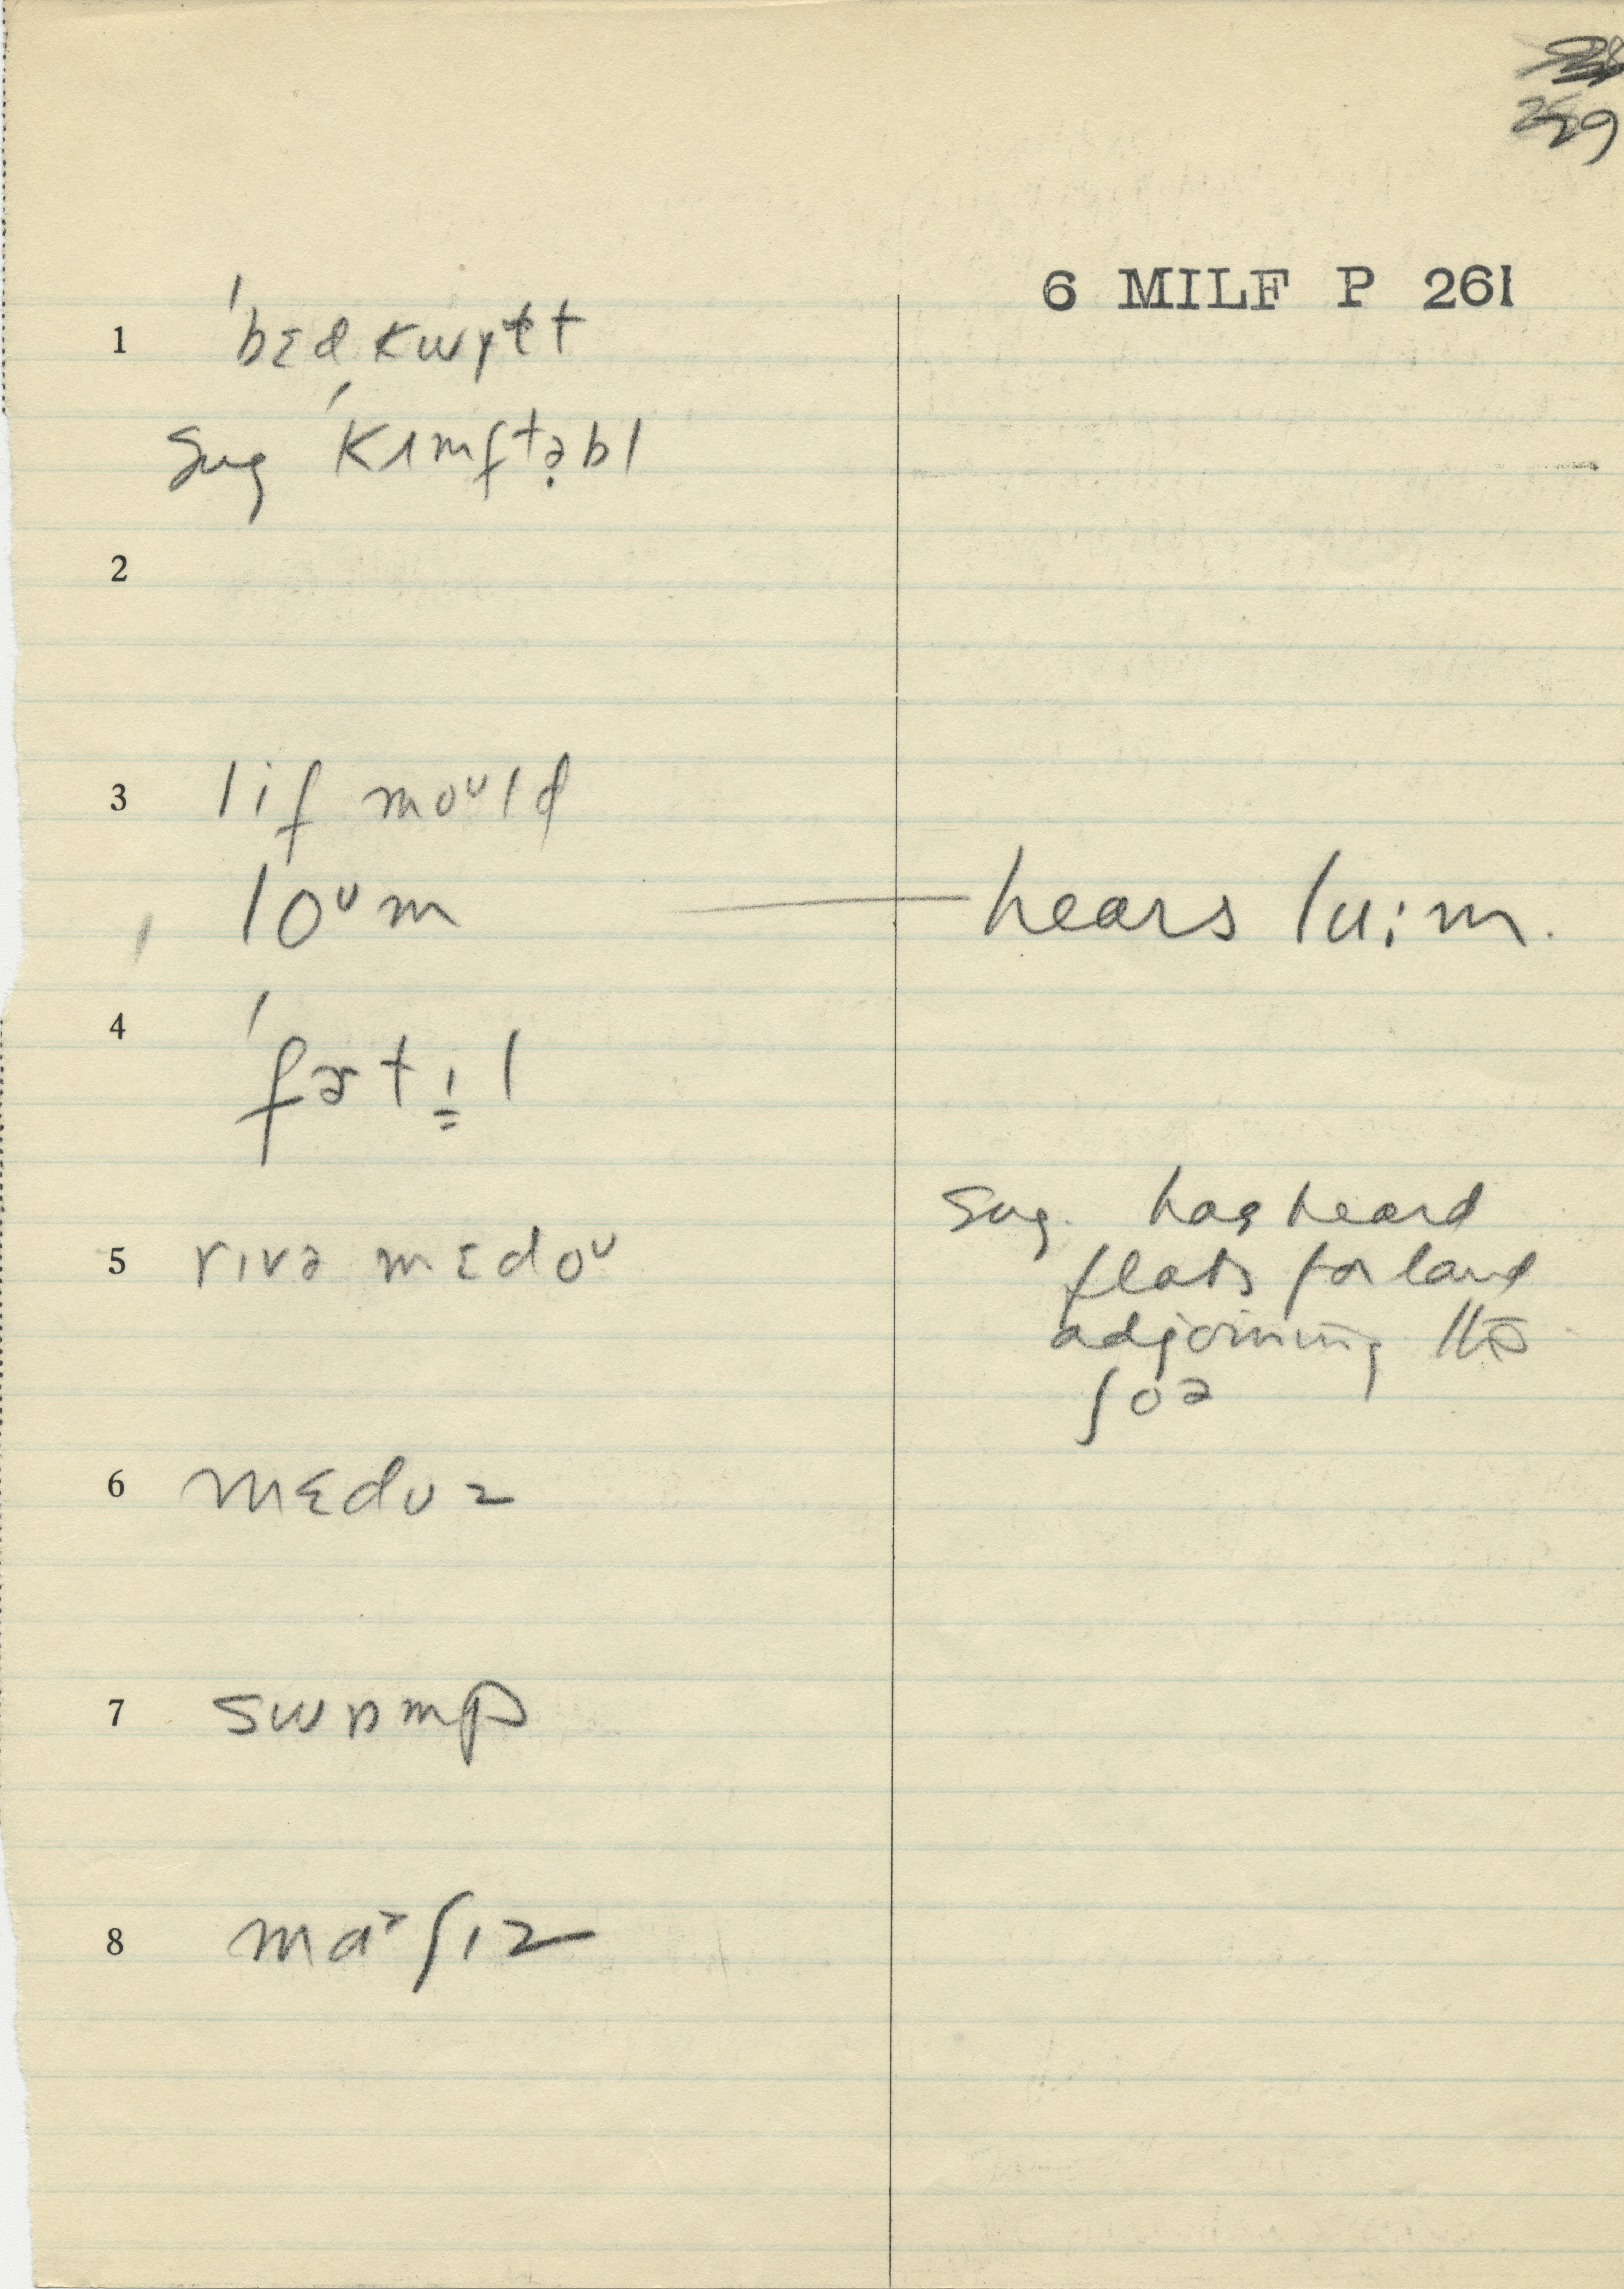 29
6 MILF P 261
1 ˈbɛd kwɪlt
Sug ˈkʌmftə̣bl
2
3 lif moᵘld
loᵘm — hears lu:m.
4 ˈfɜt ɪ̳ l
5 rɪvə mɛdoᵘ
Sug. has heard
flats for land
adjoining the
ʃoə
6 mɛdʊz
7 swɒmp
8 maᵊʃɪz